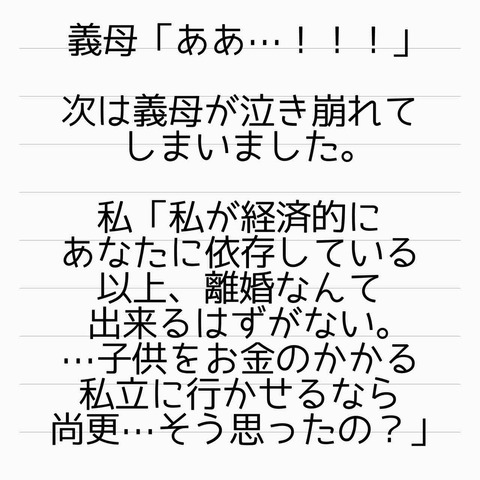 義母「ああ…！！！」
次は義母が泣き崩れて
しまいました。
私「私が経済的に
あなたに依存している
以上、離婚なんて
出来るはずがない。
…子供をお金のかかる
私立に行かせるなら
尚更…そう思ったの？」